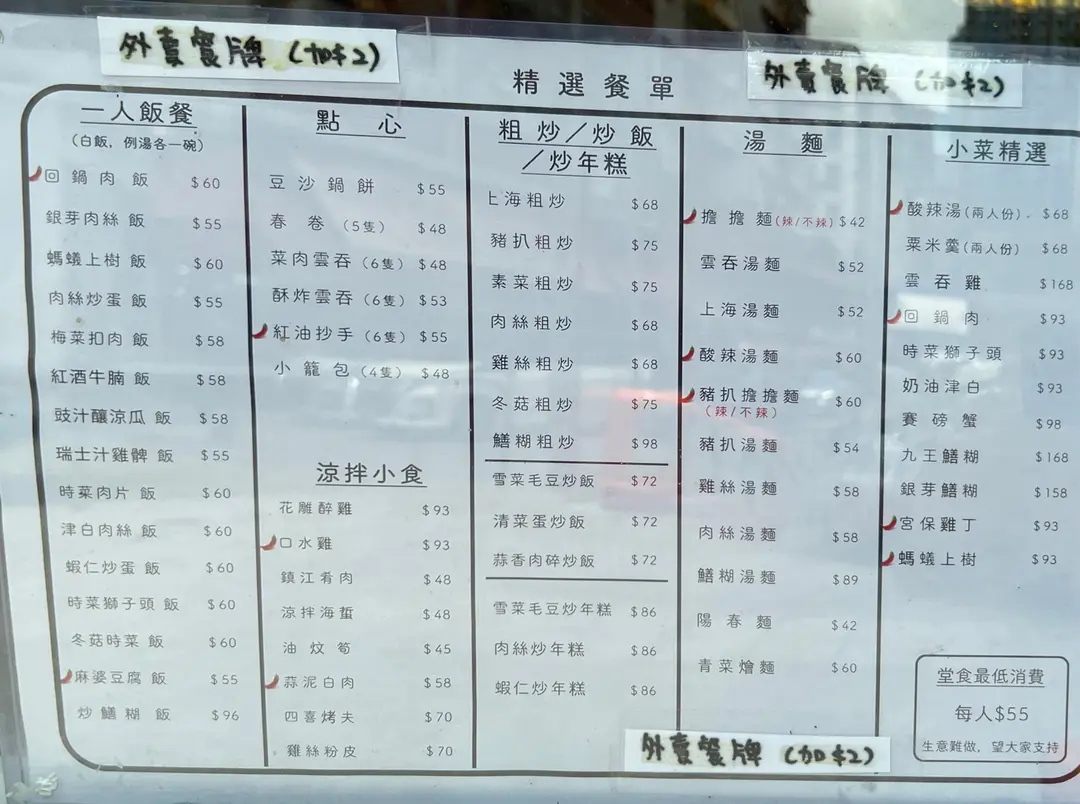 外賣餐牌 (加$2)
外賣餐牌 (加$2)
精選餐單
一人飯餐
(白飯, 例湯各一碗)
回鍋肉飯 $60
銀芽肉絲飯 $55
螞蟻上樹飯 $60
肉絲炒蛋飯 $55
梅菜扣肉飯 $58
紅酒牛腩飯 $58
豉汁釀涼瓜飯 $58
瑞士汁雞髀飯 $55
時菜肉片飯 $60
津白肉絲飯 $60
蝦仁炒蛋飯 $60
時菜獅子頭飯 $60
冬菇時菜飯 $60
麻婆豆腐飯 $55
炒鱔糊飯 $96
點心
豆沙鍋餅 $55
春卷 (5隻) $48
菜肉雲吞 (6隻) $48
酥炸雲吞 (6隻) $53
紅油抄手 (6隻) $55
小籠包 (4隻) $48
涼拌小食
花雕醉雞 $93
口水雞 $93
鎮江肴肉 $48
涼拌海蜇 $48
油炆筍 $45
蒜泥白肉 $58
四喜烤夫 $70
雞絲粉皮 $70
粗炒/炒飯
/炒年糕
上海粗炒 $68
豬扒粗炒 $75
素菜粗炒 $75
肉絲粗炒 $68
雞絲粗炒 $68
冬菇粗炒 $75
鱔糊粗炒 $98
雪菜毛豆炒飯 $72
清菜蛋炒飯 $72
蒜香肉碎炒飯 $72
雪菜毛豆炒年糕 $86
肉絲炒年糕 $86
蝦仁炒年糕 $86
湯麵
擔擔麵(辣/不辣) $42
雲吞湯麵 $52
上海湯麵 $52
酸辣湯麵 $60
豬扒擔擔麵 $60
(辣/不辣)
豬扒湯麵 $54
雞絲湯麵 $58
肉絲湯麵 $58
鱔糊湯麵 $89
陽春麵 $42
青菜燴麵 $60
小菜精選
酸辣湯(兩人份). $68
粟米羹(兩人份) $68
雲吞雞 $168
回鍋肉 $93
時菜獅子頭 $93
奶油津白 $93
賽磅蟹 $98
九王鱔糊 $168
銀芽鱔糊 $158
宮保雞丁 $93
螞蟻上樹 $93
堂食最低消費
每人$55
生意難做, 望大家支持
外賣餐牌 (加$2)